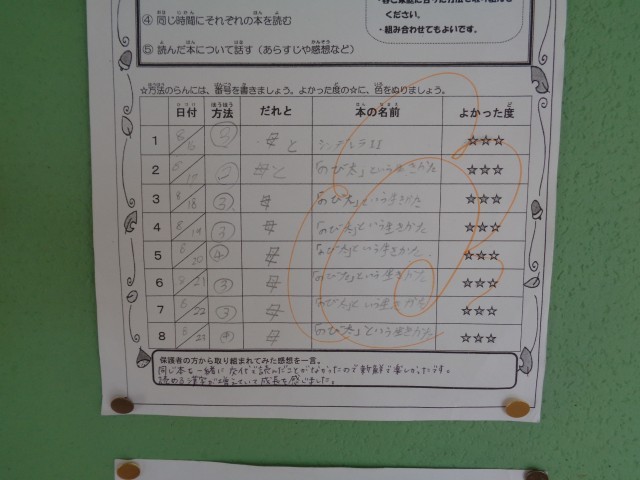 ④ 同じ時間にそれぞれの本を読む
ください。
・組み合わせてもよいです。
⑤ 読んだ本について話す（あらすじや感想など）
☆方法のらんには、番号を書きましょう。よかった度の☆に、色をぬりましょう。
日付 方法 だれと 本の名前 よかった度
1 8/6 母と シンデレラ ☆☆☆
2 母と 「のび太」という生きかた ☆☆☆
3 8/18 ③ 母 「のび太」という生きかた ☆☆☆
4 8/19 ③ 母 「のび太」という生きかた ☆☆☆
5 8/20 ④ 母 「のび太」という生きかた ☆☆☆
6 8/21 ③ 母 「のび太」という生きかた ☆☆☆
7 8/22 ③ 母 「のび太」という生きかた ☆☆☆
8 母 「のび太」という生きかた ☆☆☆
保護者の方から取り組まれてみた感想を一言。
同じ本を一緒に交代で読んだことがなかったので新鮮で楽しかったです。
読める漢字が増えていて成長を感じました。